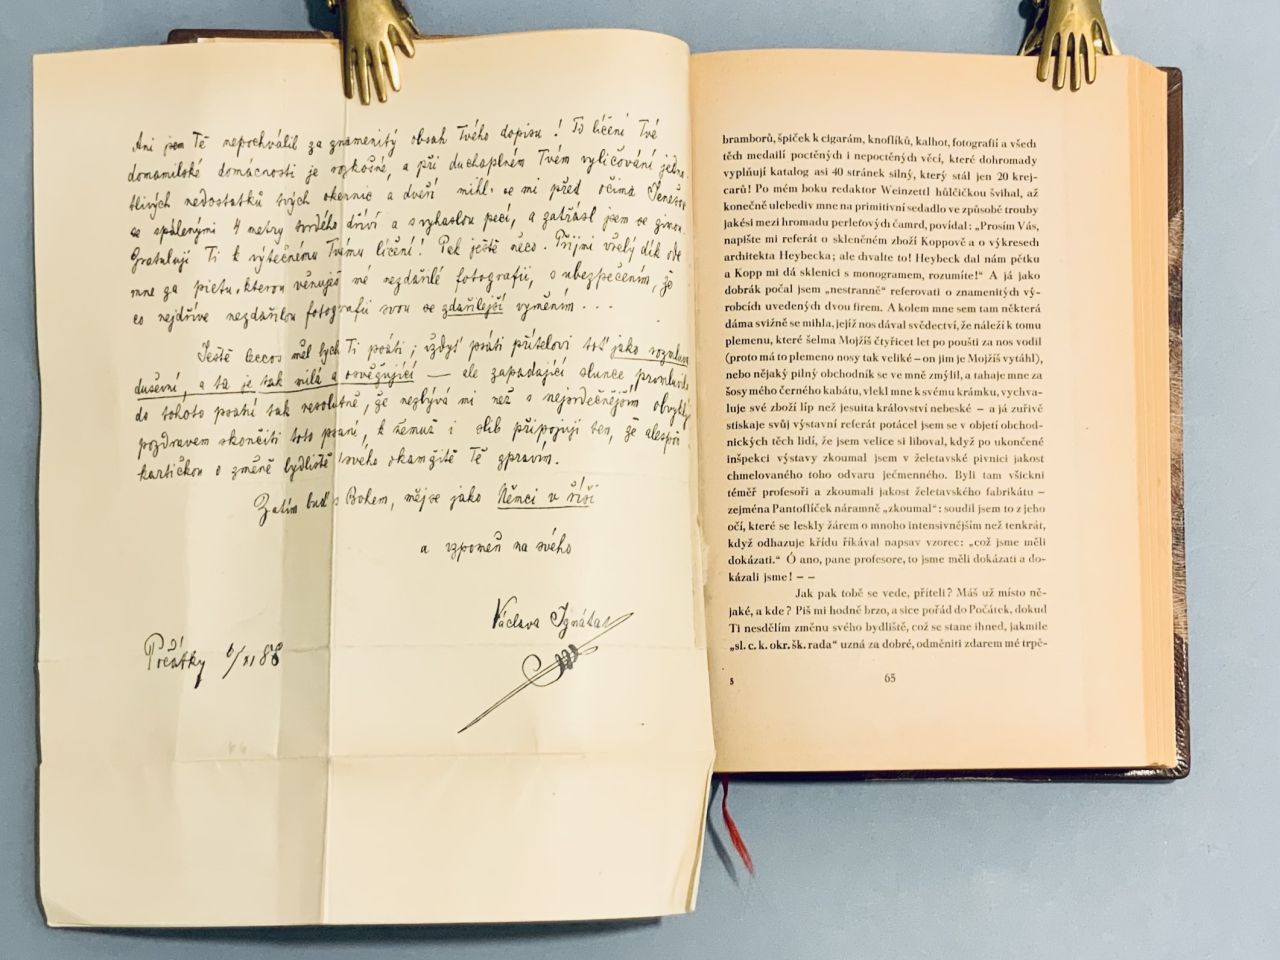 Ani jsem Tě nepochválil za znamenitý obsah Tvého dopisu! To líčení Tvé
donamilské domácnosti je rozkošné, a při duchaplném Tvém vyličování jedno-
tlivých nedostatků tvých okennic a dveří mihl. se mi před očima Jenešov
se spálenými 4 metry tvrdého dříví a s vyhaslou pecí, a zatřásl jsem se zimou.
Gratuluji Ti k výtečnému Tvému líčení! Pak ještě něco. Přijmi vřelý dík ode
mne za pietu, kterou věnuješ mé nezdařilé fotografii, s ubezpečením, že
co nejdříve nezdařilou fotografii svou se zdařilejší vyměním . . .
Ještě leccos měl bych Ti psáti; vždyť psáti přítelovi toť jako rozmluva
duševní, a ta je tak milá a osvěžující — ale zapadající slunce promluvilo
do tohoto psaní tak resolutně, že nezbývá mi než s nejsrdečnějším obvyklým
pozdravem skončiti toto psaní, k němuž i slib připojuji ten, že alespoň
kartičkou o změně bydliště svého okamžitě Tě zpravím.
Zatím buď s Bohem, měj se jako Němci v říši
a vzpomeň na svého
Václava Ignáta
Počátky 6/XI 88
bramborů, špiček k cigarám, knoflíků, kalhot, fotografií a všech
těch medailí poctěných i nepoctěných věcí, které dohromady
vyplňují katalog asi 40 stránek silný, který stál jen 20 krej-
carů! Po mém boku redaktor Weinzettl hůlčičkou švihal, až
konečně ulebediv mne na primitivní sedadlo ve způsobě trouby
jakési mezi hromadu perleťových čamrd, povídal: „Prosím Vás,
napište mi referát o skleněném zboží Koppově a o výkresech
architekta Heybecka; ale chvalte to! Heybeck dal nám pětku
a Kopp mi dá sklenici s monogramem, rozumíte!“ A já jako
dobrák počal jsem „nestranně“ referovati o znamenitých vý-
robcích uvedených dvou firem. A kolem mne sem tam některá
dáma svižně se mihla, jejíž nos dával svědectví, že náleží k tomu
plemenu, které šelma Mojžíš čtyřicet let po poušti za nos vodil
(proto má to plemeno nosy tak veliké – on jim je Mojžíš vytáhl),
nebo nějaký pilný obchodník se ve mně zmýlil, a tahaje mne za
šosy mého černého kabátu, vlekl mne k svému krámku, vychva-
luje své zboží líp než jesuita království nebeské – a já zuřivě
stiskaje svůj výstavní referát potácel jsem se v objetí obchod-
nických těch lidí, že jsem velice si liboval, když po ukončené
inšpekci výstavy zkoumal jsem v želetavské pivnici jakost
chmelovaného toho odvaru ječmenného. Byli tam všickni
téměř profesoři a zkoumali jakost želetavského fabrikátu –
zejména Pantoflíček náramně „zkoumal“: soudil jsem to z jeho
očí, které se leskly žárem o mnoho intensivnějším než tenkrát,
když odhazuje křídu říkával napsav vzorec: „což jsme měli
dokázati.“ Ó ano, pane profesore, to jsme měli dokázati a do-
kázali jsme! – –
Jak pak tobě se vede, příteli? Máš už místo ně-
jaké, a kde? Piš mi hodně brzo, a sice pořád do Počátek, dokud
Ti nesdělím změnu svého bydliště, což se stane ihned, jakmile
„sl. c. k. okr. šk. rada“ uzná za dobré, odměniti zdarem mé trpě-
5 65